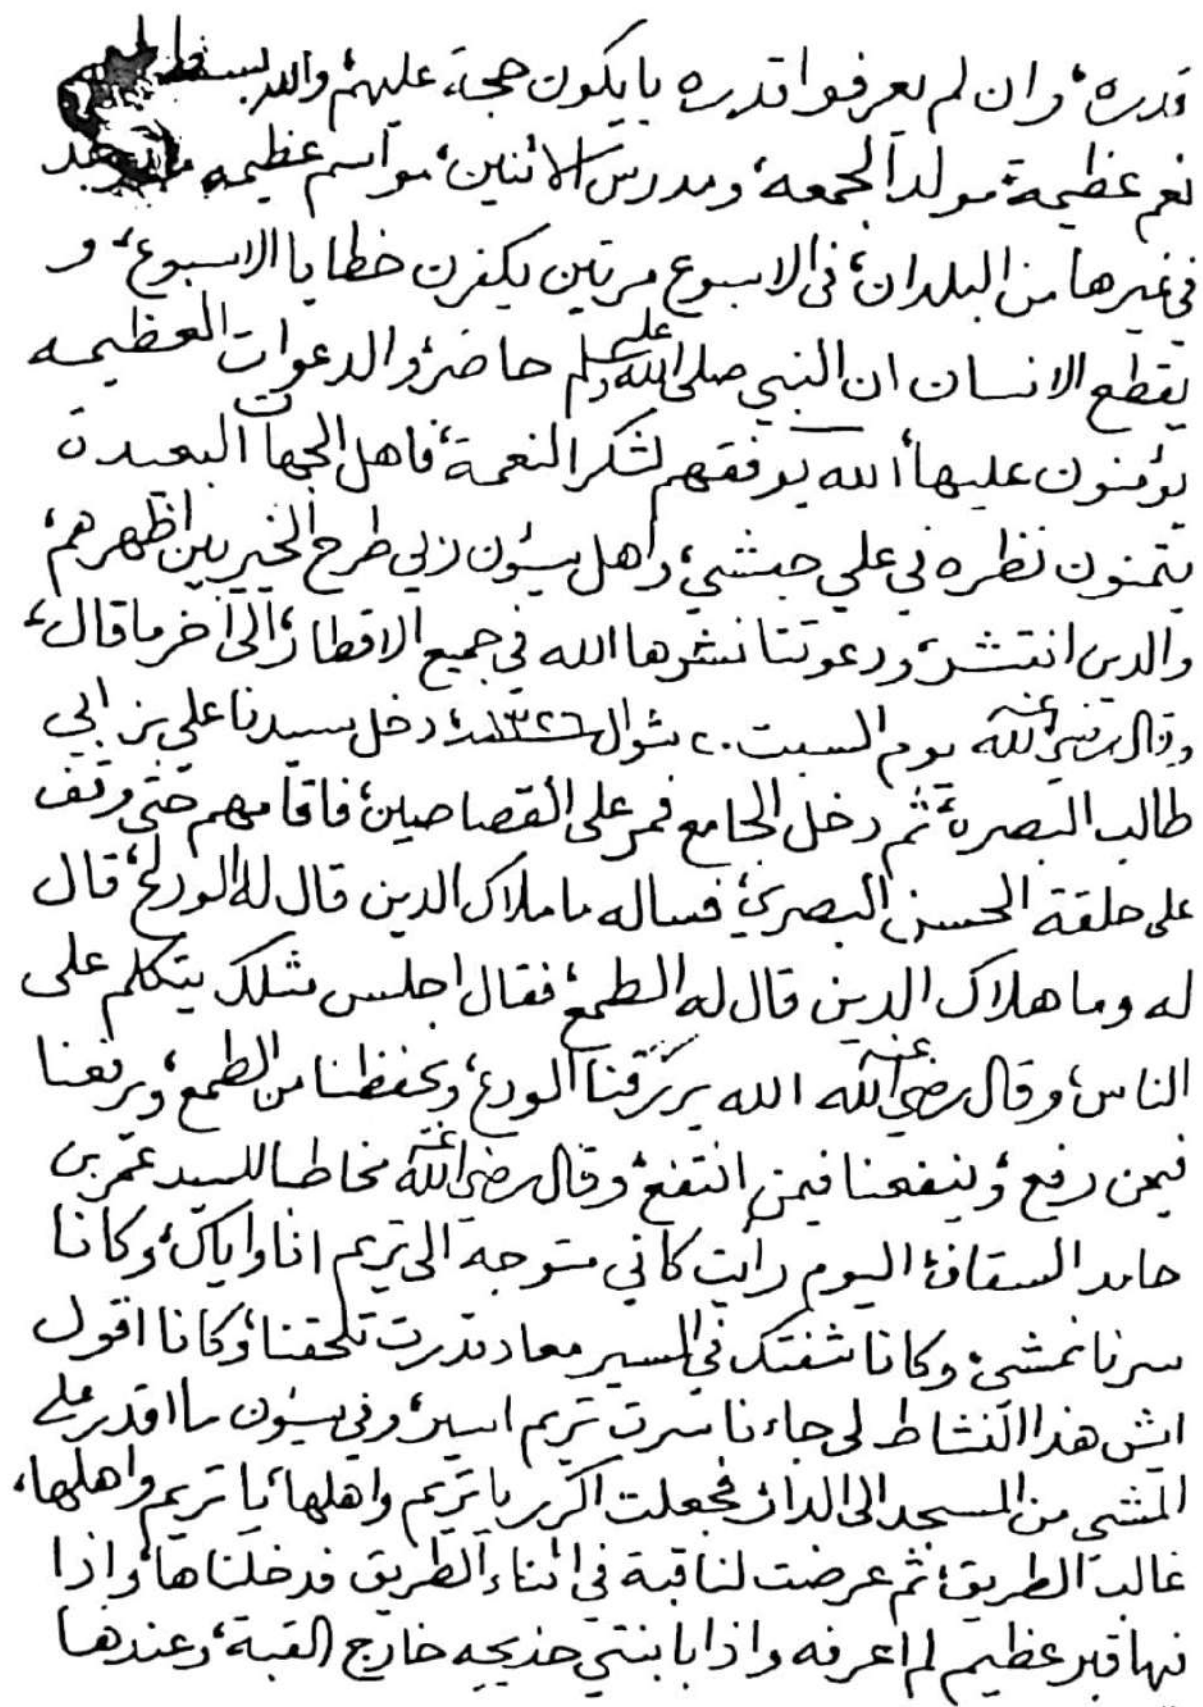 قدره، وان لم يعرفوا قدره بايكون حجة عليهم، والله بسط لهم
نعم عظيمة، مولد الجمعه، ومدرس الاثنين، مواسم عظيمه ماتوجد
في غيرها من البلدان، في الاسبوع مرتين يكفرن خطايا الاسبوع، و
يقطع الانسان ان النبي صلى الله عليه وسلم حاضر، والدعوات العظيمه
يؤمنون عليها، الله يوفقهم لشكر النعمة، فاهل الجهات البعيدة
يتمنون نظره في علي حبشي، واهل سيؤن ربي طرح الخير بين اظهرهم،
والدين انتشر، ودعوتنا نشرها الله في جميع الاقطار، الى آخر ما قال،
وقال رضي الله عنه يوم السبت ٢٠ شوال ١٣٢٦ دخل سيدنا علي بن ابي
طالب البصرة، ثم دخل الجامع فمر على القصاصين، فاقامهم حتى وقف
على حلقة الحسن البصري، فساله ما ملاك الدين قال له الورع، قال
له وما هلاك الدين قال له الطمع، فقال اجلس مثلك يتكلم على
الناس، وقال رضي الله عنه الله يرزقنا الورع، ويحفظنا من الطمع، ويرفعنا
فيمن رفع، وينفعنا فيمن انتفع، وقال رضي الله عنه مخاطبا للسيد عمر بن
حامد السقاف، اليوم رأيت كاني متوجه الى تريم انا واياك، وكانا
سرنا نمشي، وكانا شفتك في السير معاد قدرت تلحقنا، وكانا اقول
ايش هذا النشاط لي جاءنا سرت تريم اسير، وفي سيؤن ما اقدر على
المشي من المسجد الى الدار، فجعلت اكرر يا تريم واهلها، يا تريم واهلها،
غالب الطريق، ثم عرضت لنا قبة في اثناء الطريق فدخلناها، واذا
فيها قبر عظيم لم اعرفه واذا بابنتي خديجه خارج القبة، وعندها